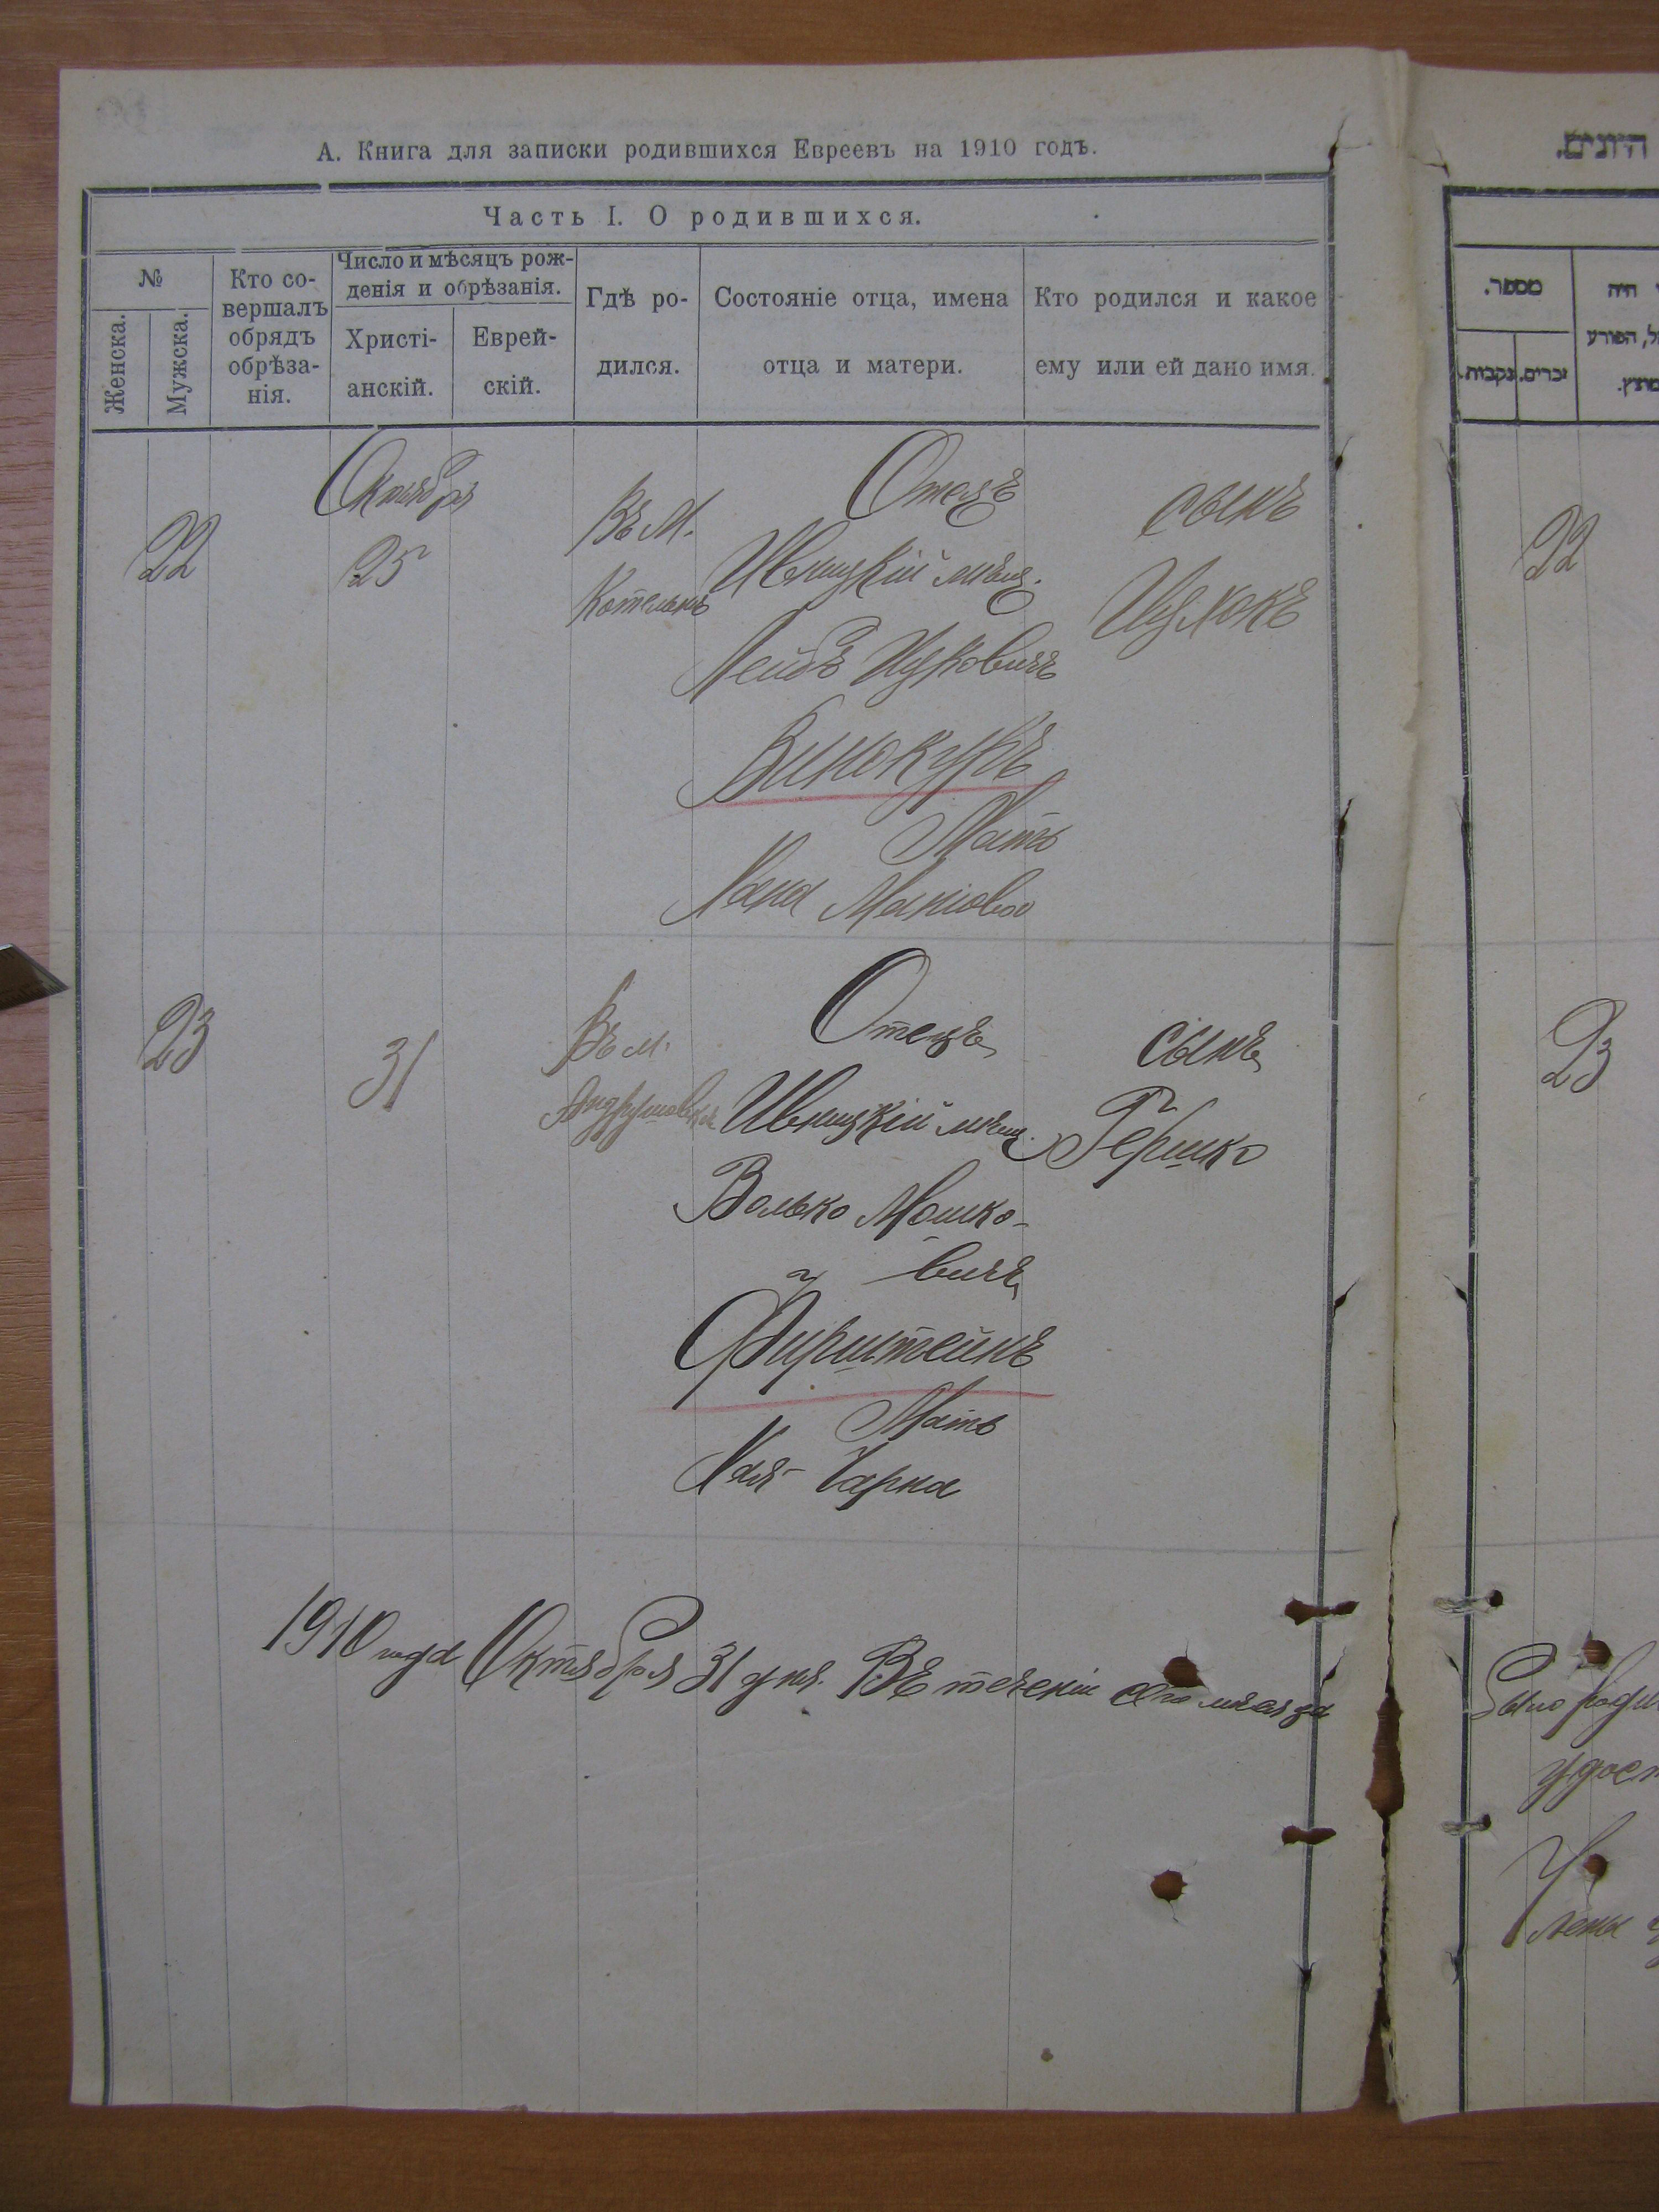 А. Книга для записки родившихся Евреевъ на 1910 годъ.
Часть I. О родившихся.
№
Женска.
Мужска.
Кто со-
вершалъ
обрядъ
обрѣза-
нія.
Число и мѣсяцъ рож-
денія и обрѣзанія.
Христі-
анскій.
Еврей-
скій.
Гдѣ ро-
дился.
Состояніе отца, имена
отца и матери.
Кто родился и какое
ему или ей дано имя.
22
Октября
25
Въ М.
Котельнѣ
Отецъ
Ивницкій мѣщ.
Лейбъ Ицковичъ
Винокуръ
Мать
Хана
сынъ
Ицхокъ
23
31
Въ м.
Андрушовкѣ
Отецъ
Ивницкій мѣщ.
Волько Мошко-
вичъ
Фирштейнъ
Мать
Хая-Чарна
сынъ
Гершко
1910 года Октября 31 дня. Въ теченіи сего мѣсяца
היונים.
מספר.
זכרים.
נקבות.
22
23